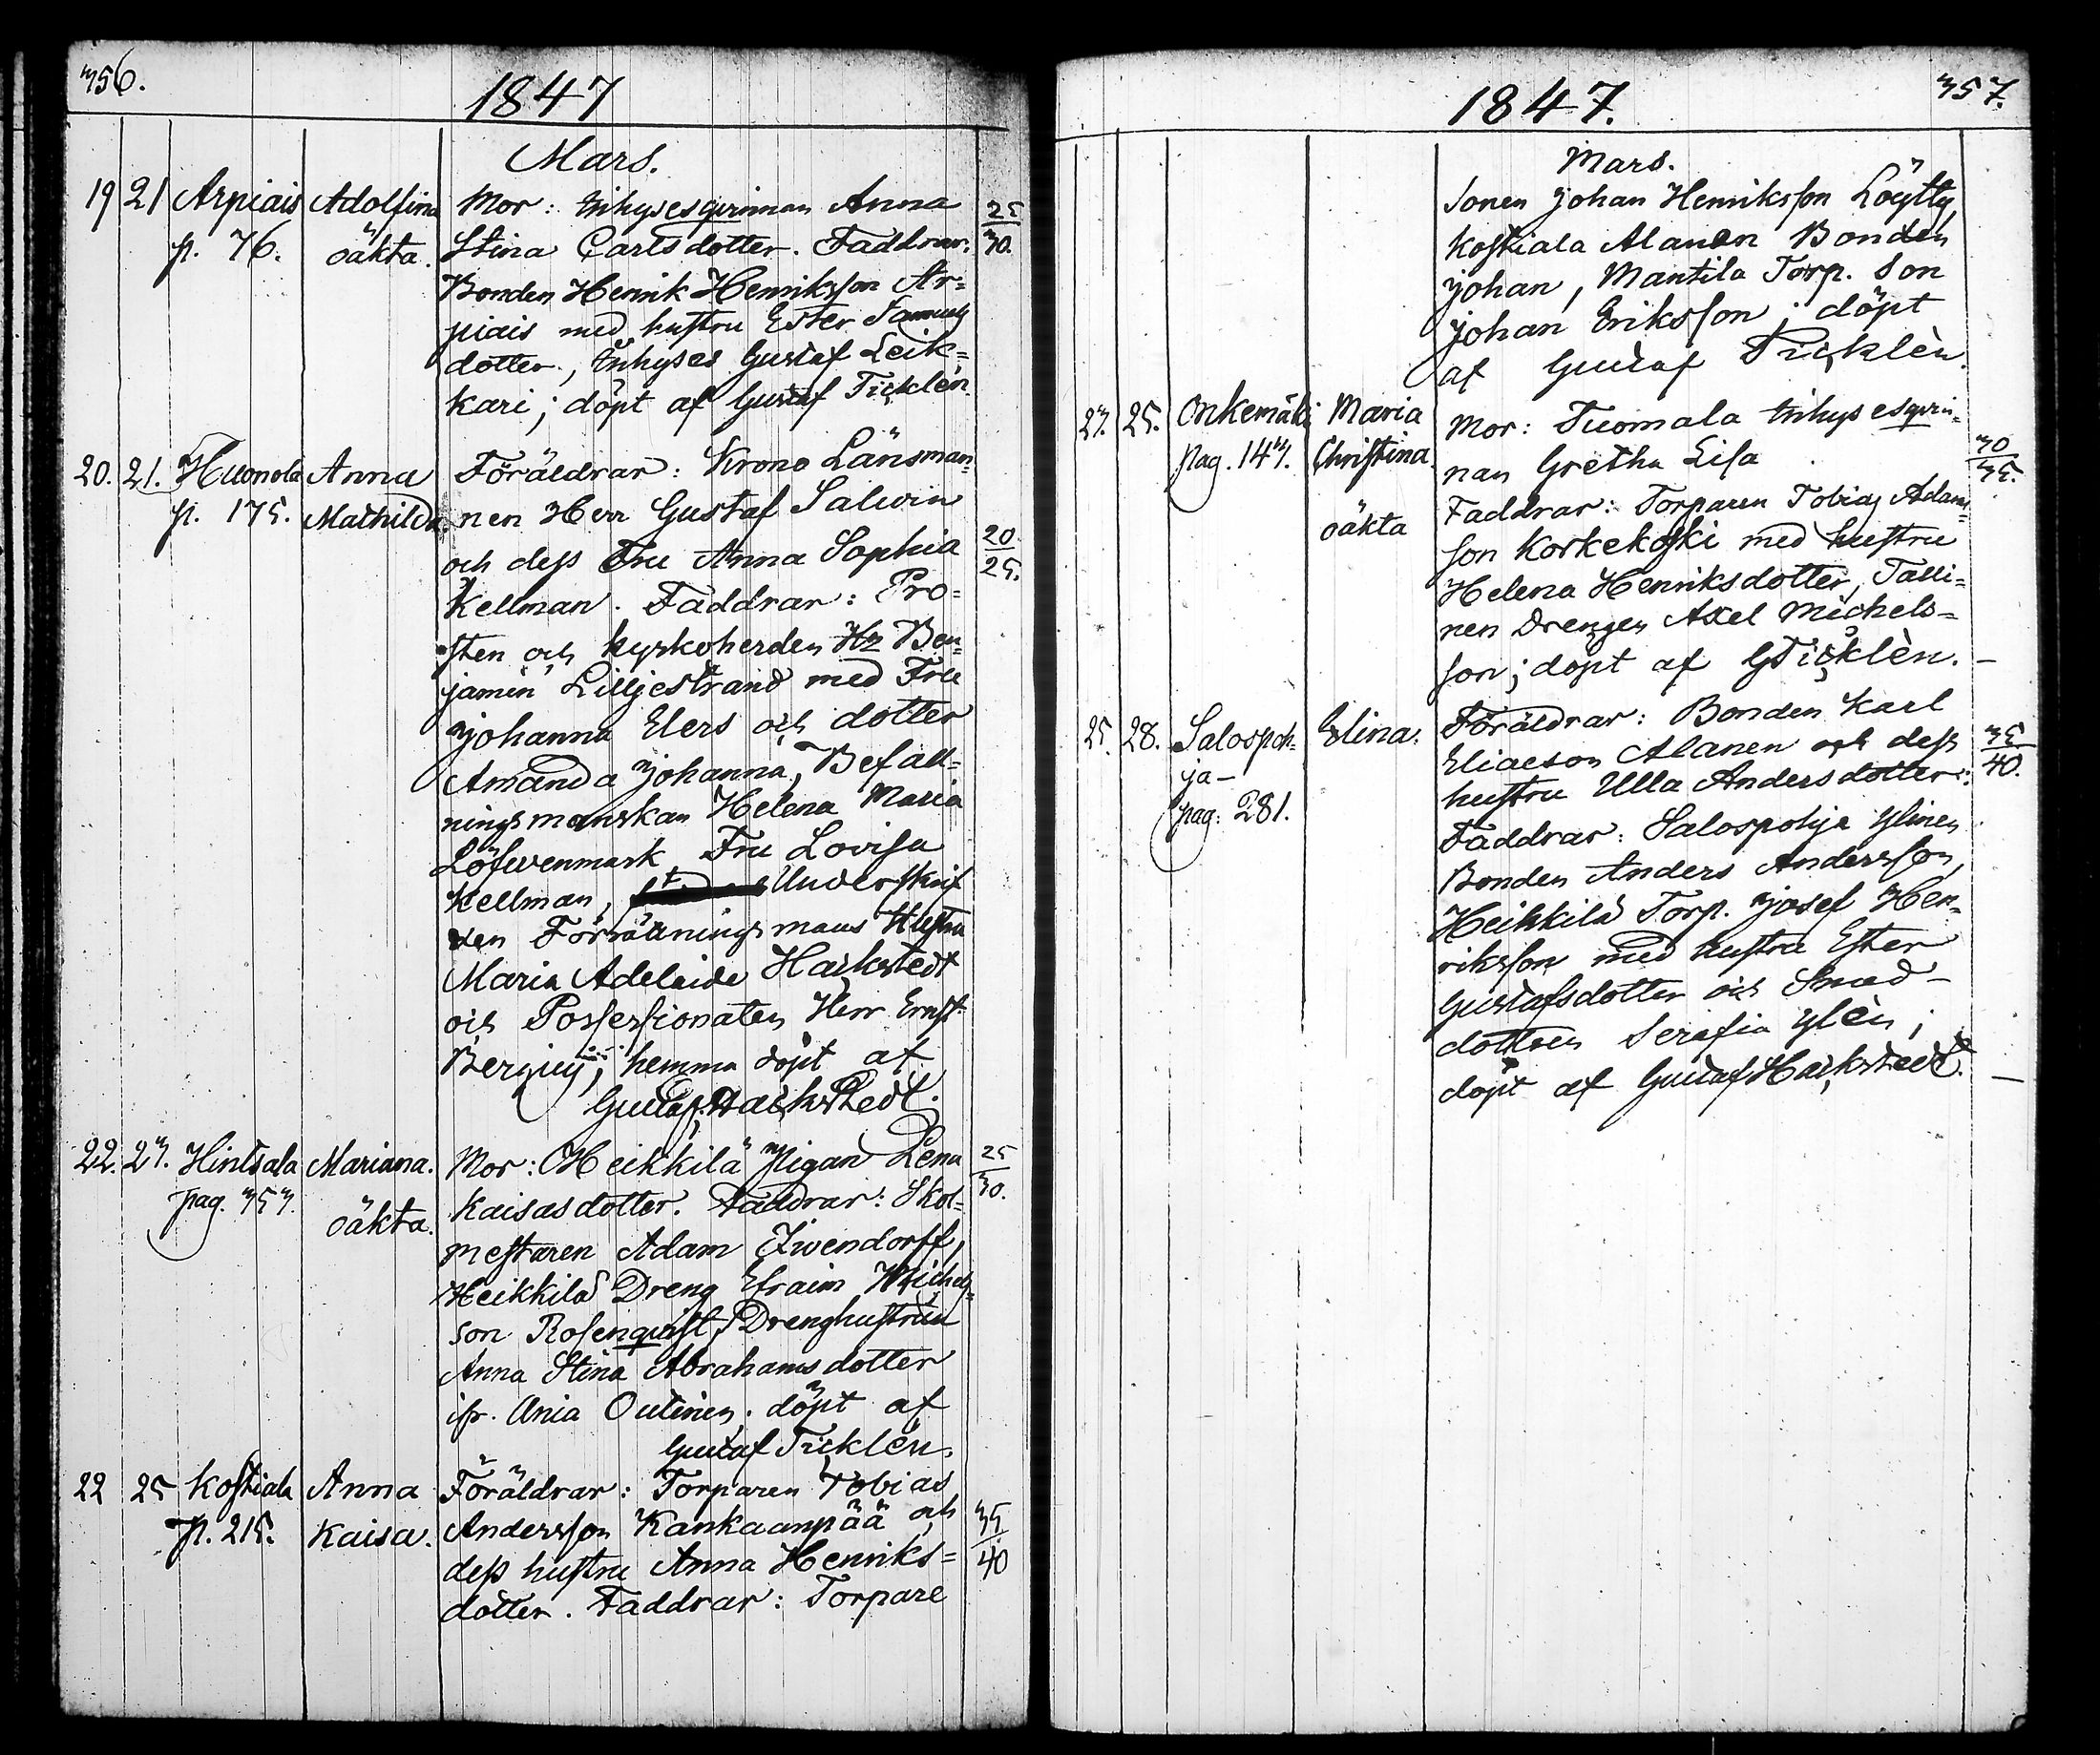 356.
1847
Mars.
19 21 Arpiais Adolfina Mor: Inhysesqvinnan Anna 25
p. 76. oäkta. Stina Carlsdotter. Faddrar: 30.
Bonden Henrik Henriksson Ar=
piais med hustru Ester Samuels
dotter, Inhyses Gustaf Leik=
kari; döpt af Gustaf Ticklén.
20. 21. Huonola Anna Föräldrar: Krono Länsman=
p. 175. Mathilda. nen Herr Gustaf Salwin
och dess Fru Anna Sophia 20
25.
Kellman. Faddrar: Pro=
sten och Kyrkoherden Hr Ben=
jamin Lilljestrand med Fru
Johanna Elers och dotter
Amanda Johanna, Befall=
ningsmanskan Helena Maria
Löfwenmark, Fru Lovisa
Kellman, Underskrif
ven Förrättningsmans Hustru
Maria Adelaide Hackstedt
och Possessionaten Herr Ernst
; hemma döpt af
Gustaf Hackstedt.
22. 23. Hintsala Mariana. Mor: Heikkilä Pigan Lena 25
pag. 353. oäkta. Kaisasdotter. Faddrar: Skol= 30.
mestaren Adam Zwendorff,
Heikkilä Dreng Efraim Michels=
son Rosenqvist, Drenghustrun
Anna Stina Abrahamsdotter
ifr. Ania Outinen; döpt af
Gustaf Ticklén.
22 25 Kostiala Anna Föräldrar: Torparen Tobias
p. 215. Kaisa. Andersson Kankaanpää och 35
dess hustru Anna Henriks= 40
dotter. Faddrar: Torpare
357.
1847.
Mars.
sonen Johan Henriksson Löytty,
Kostiala Alanen Bonden
Johan, Mantila Torp. Son
Johan Eriksson; döpt
af Gustaf Ticklèn.
23. 25. Onkemäki Maria Mor: Tuomala Inhysesqvin=
pag. 143. Christina. nan Gretha Lisa 30
35.
oäkta Faddrar: Torparen Tobias Adams=
son Korkekoski med hustru
Helena Henriksdotter, Talli=
nen Drengen Axel Michels=
son; döpt af GTicklèn. —
25. 28. Salospoh= Elina. Föräldrar: Bonden Karl
ja — Eliaeson Alanen och dess 35
pag: 281. hustru Ulla Andersdotter: 40.
Faddrar: Salospohja Ylinen
Bonden Anders Andersson,
Heikkilä Torp. Josef Hen=
riksson med hustru Ester
Gustafsdotter och Smed—
dottren Serafia Ylèn;
döpt af Gustaf Hackstedt. —